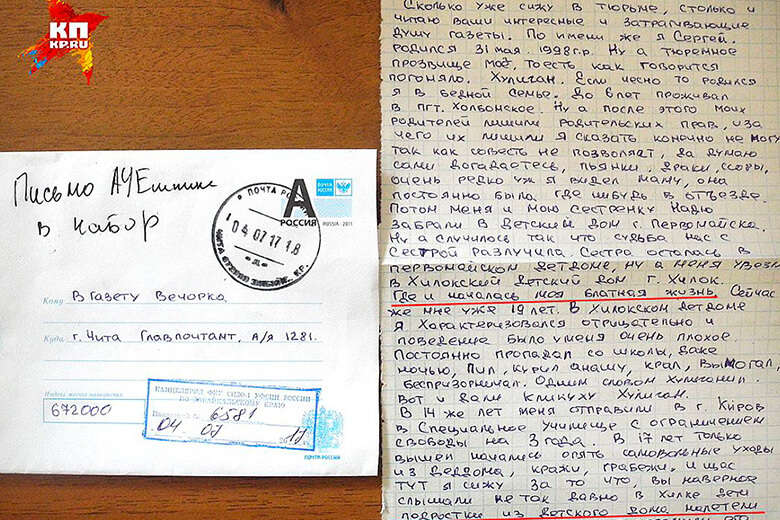 КП
KP.RU
Письмо АУЕшника
в набор
ПОЧТА РОССИИ
А
РОССИЯ
RUSSIA - 2011
04 07 17 18
Кому В Газету Вечорка
Куда г. Чита Главпочтамт, А/я 1281.
Индекс места назначения
672000
КАНЦЕЛЯРИЯ ФКУ СИЗО-1 УФСИН РОССИИ
ПО ЗАБАЙКАЛЬСКОМУ КРАЮ
6581
04 07 17
ПОЧТА РОССИИ
Сколько уже сижу в тюрьме, столько и
читаю ваши интересные и затрагивающие
душу газеты. По имени же я Сергей.
родился 31 мая 1998г.р. Ну а тюремное
прозвище моё, тоесть как говорится
погоняло. Хулиган. Если чесно то родился
я в бедной семье. До 8 лет проживал
в пгт. Холбонское. Ну а после этого моих
родителей лишили родительских прав, иза
чего их лишили я сказать конечно не могу
так как совесть не позволяет, да думаю
сами догадаетесь, пьянки, драки, ссоры,
очень редко уж я видел маму, она
постоянно была где нибудь в отъезде.
Потом меня и мою сестренку Надю
забрали в Детский Дом г. Первомайска.
Ну а случилось так что судьба нас с
Сестрой разлучила. Сестра осталась в
первомайском детдоме, ну а меня увезли
в Хилокский детский дом г. Хилок.
Где и началась моя блатная жизнь. Сейчас
же мне уже 19 лет. В Хилокском детдоме
я характеризовался отрицательно и
поведение было у меня очень плохое.
Постоянно пропадал со школы, даже
ночью, пил, курил анашу, крал, вымогал,
беспризорничал. Одним словом Хулиганил.
Вот и дали кликуху Хулиган.
В 14 же лет меня отправили в г. Киров
в Специальное училище с ограничением
свободы на 3 года. В 17 лет только
вышел начались опять самовольные уходы
из Деддома, кражи, грабежи, и щас
тут я сижу за то что, вы наверное
слышали не так давно в Хилке дети
подростки из детского дома налетели